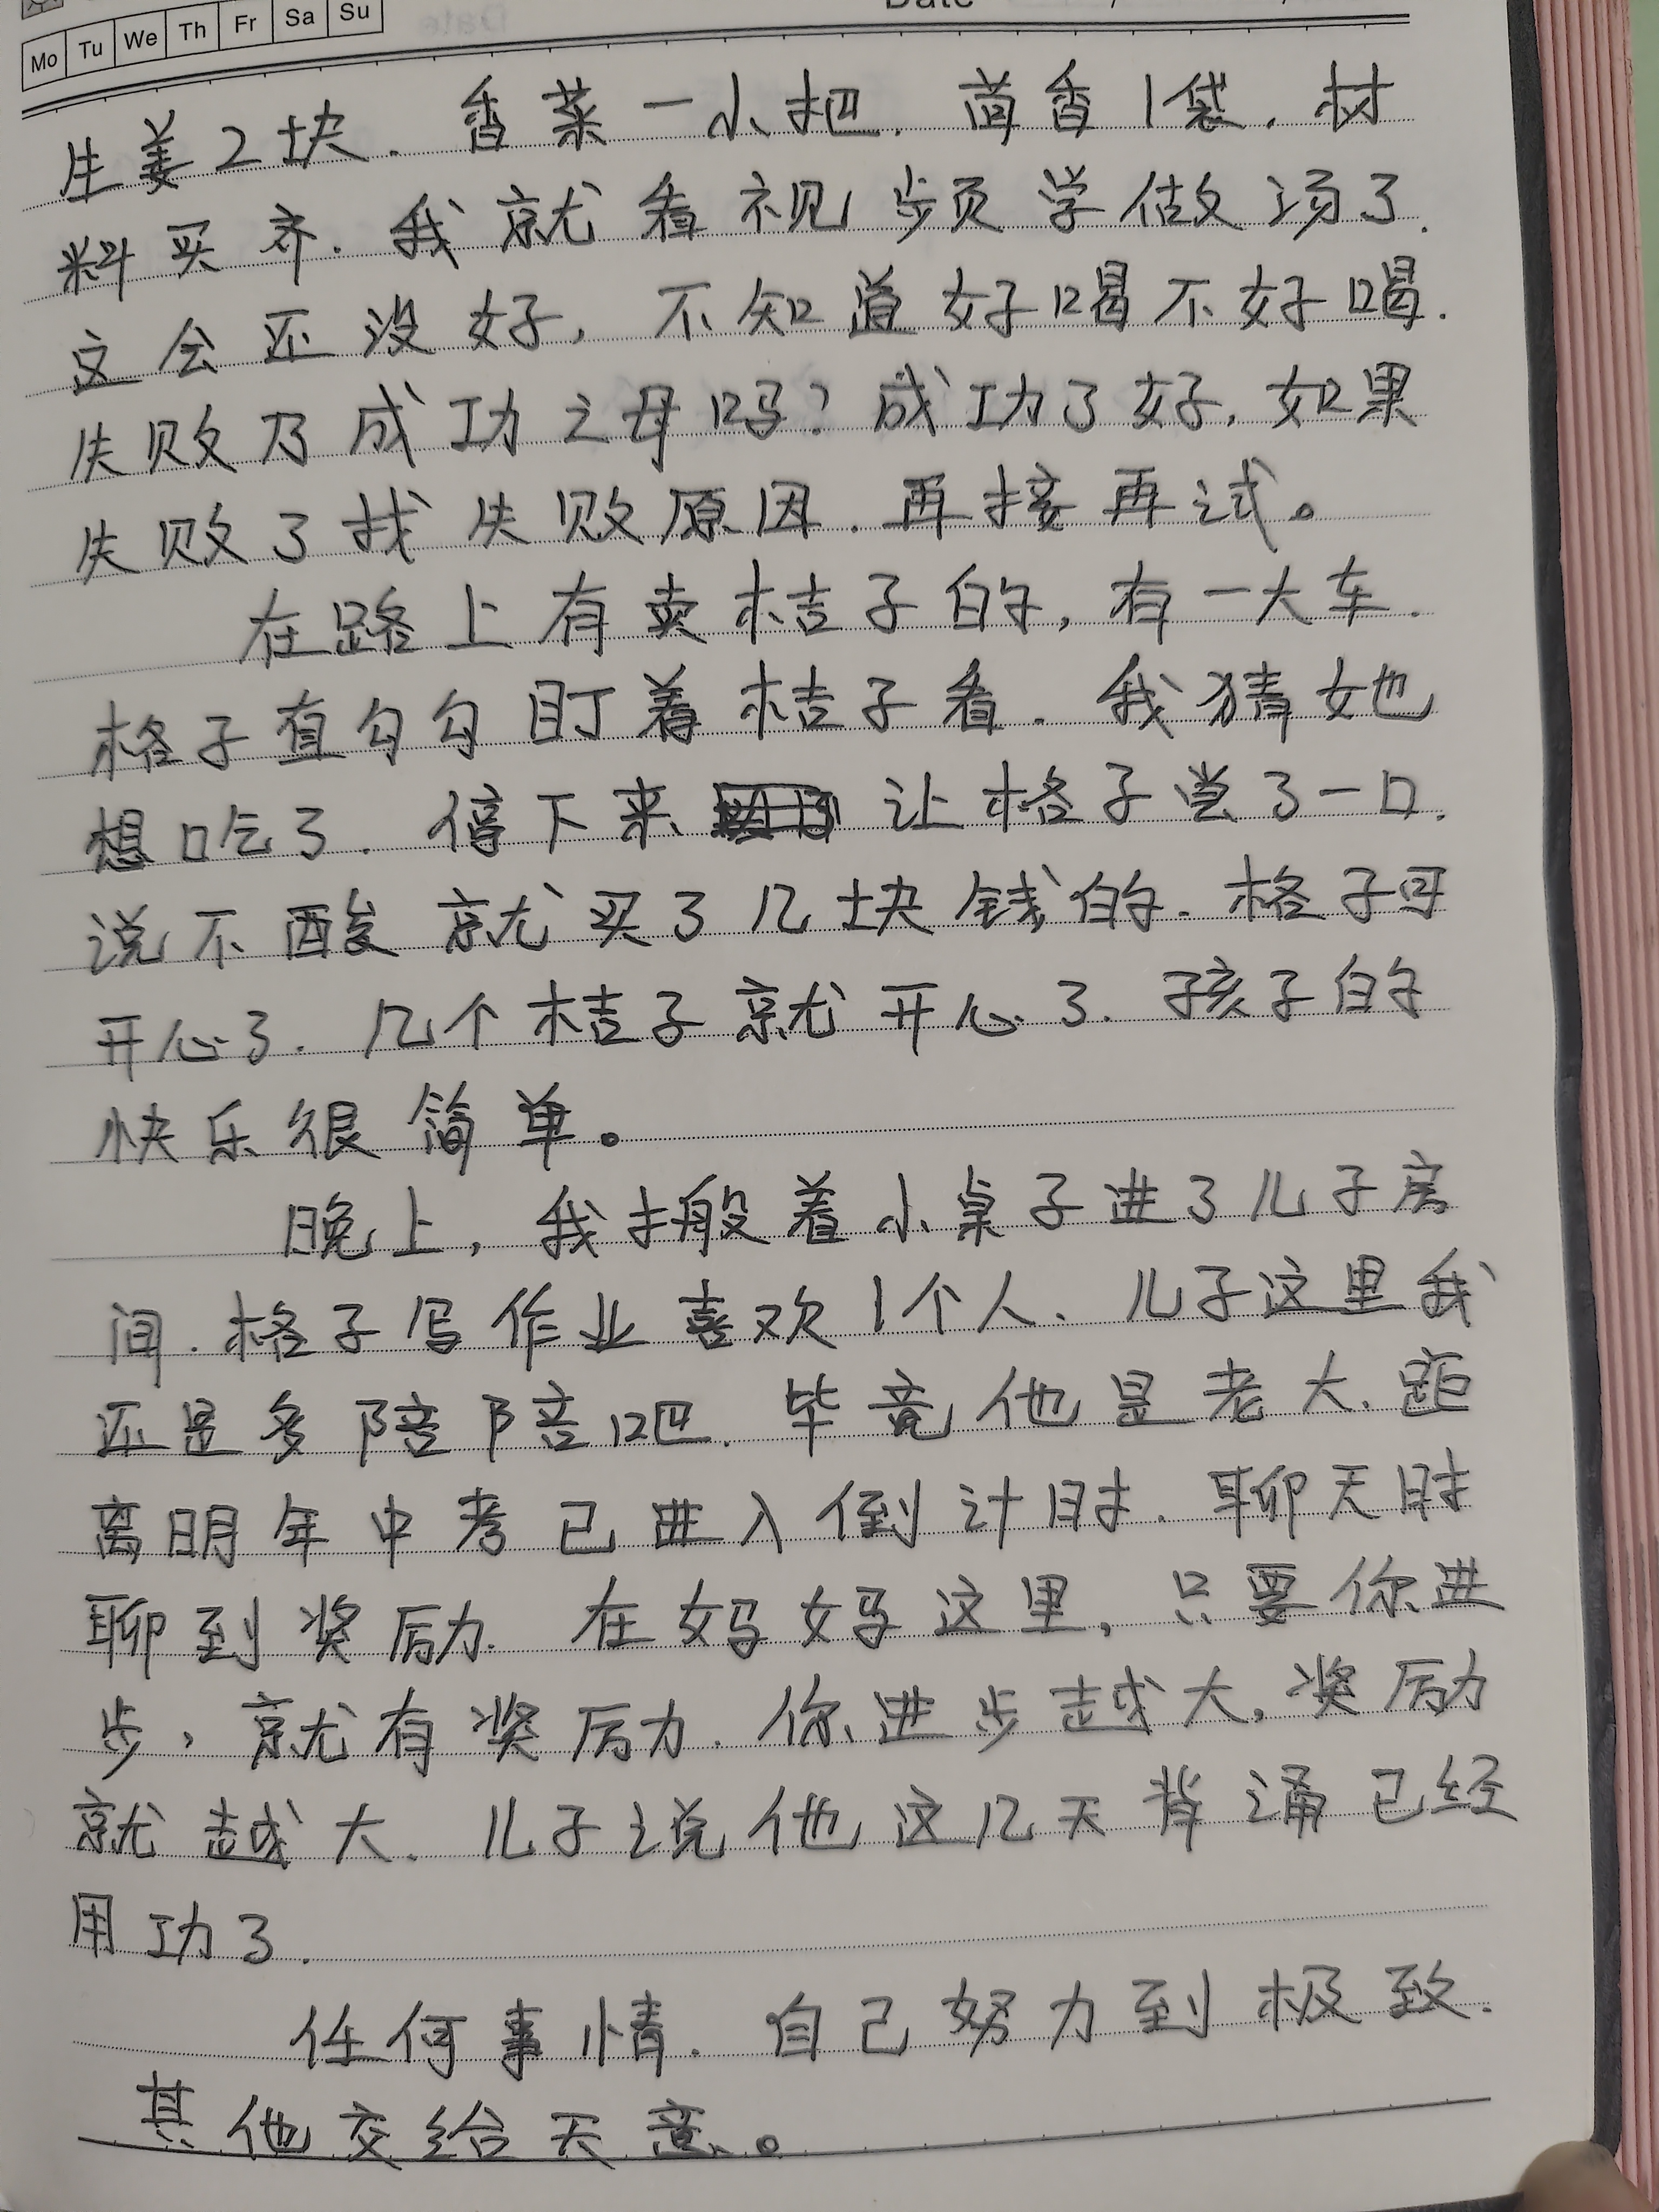 Mo Tu We Th Fr Sa Su
Date
生姜2块.香菜一小把.茴香1袋.材
料买齐.我就看视步页学做汤了.
这会还没好,不知道好喝不好喝.
失败乃成功之母吗?成功了好,如果
失败了找失败原因.再接再试。
在路上有卖桔子的,有一大车.
格子直勾勾盯着桔子看.我猜她
想吃了.停下来 让格子尝了一口.
说不酸就买了几块钱的.格子可
开心了.几个桔子就开心了.孩子的
快乐很简单。
晚上,我搬着小桌子进了儿子房
间.格子写作业喜欢1个人、儿子这里我
还是多陪陪吧.毕竟他是老大.距
离明年中考已进入倒计时.聊天时
聊到奖励.在妈妈这里,只要你进
步,就有奖励.你进步越大,奖励
就越大.儿子说他这几天背诵已经
用功了.
任何事情.自己努力到极致.
其他交给天意。